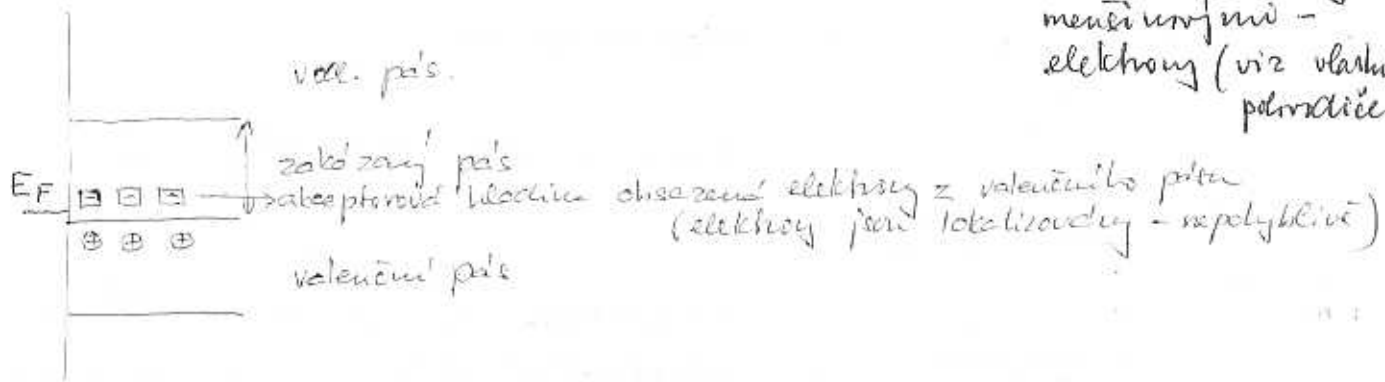 menšinovými -
elektrony (viz vlastní
polovodiče
vod. pás.
zakázaný pás
E_F
akceptorová hladina obsazená elektrony z valenčního pásu
(elektrony jsou lokalizovány - nepohyblivé)
valenční pás